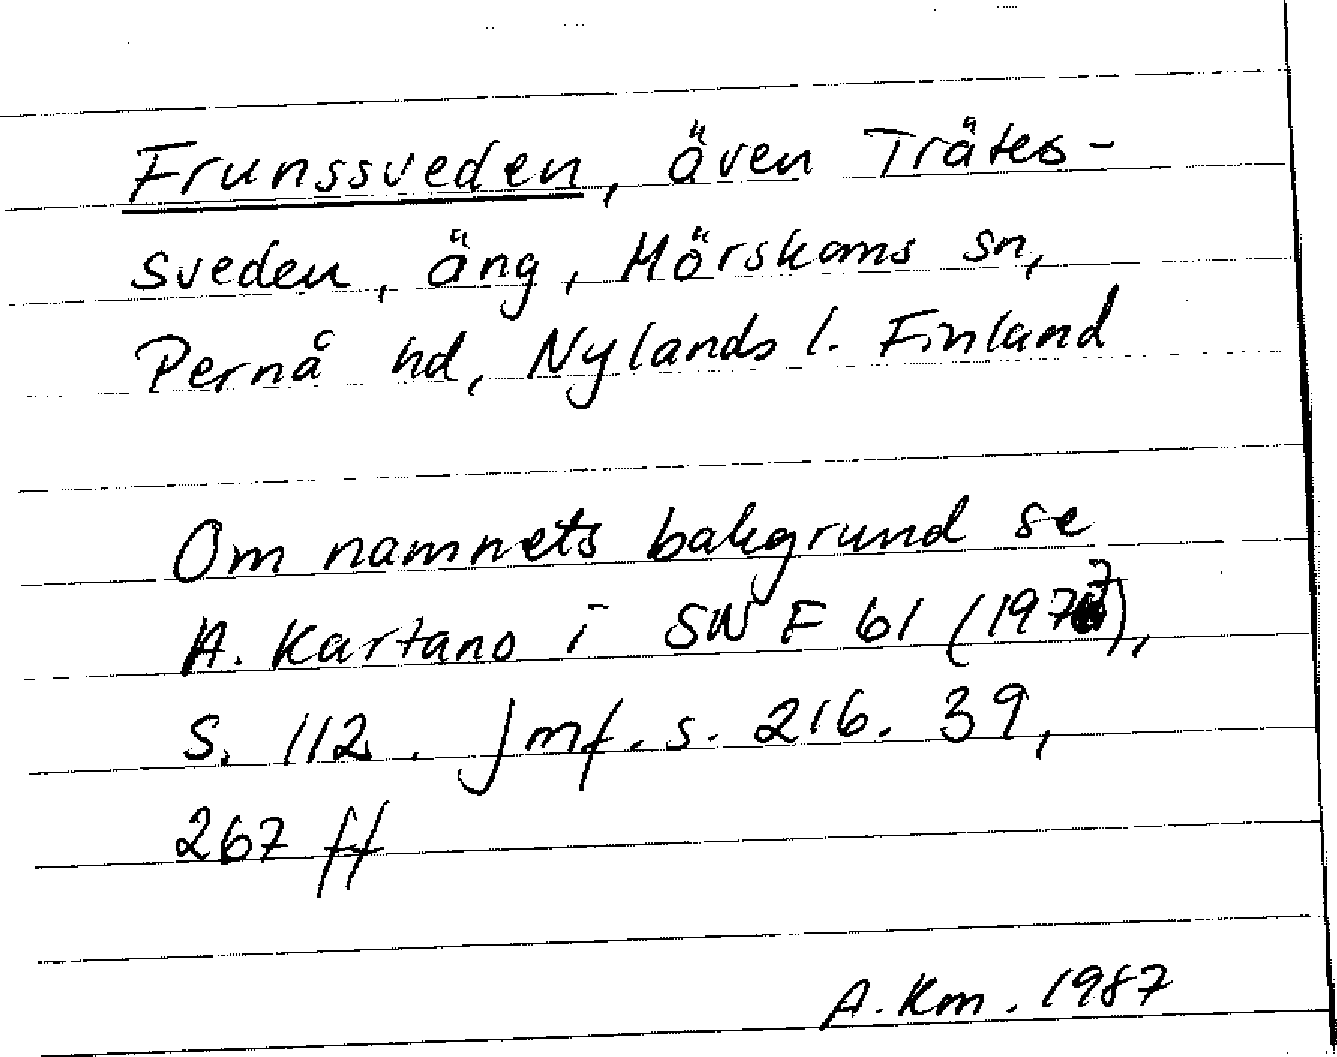 Frunssveden, även Trätes-
sveden, äng, Mörskoms sn,
Pernå hd, Nylands l. Finland
Om namnets bakgrund se
A. Kartano i SNF 61 (1977),
s. 112. Jmf. s. 216. 39,
267 ff
A. Km. 1987